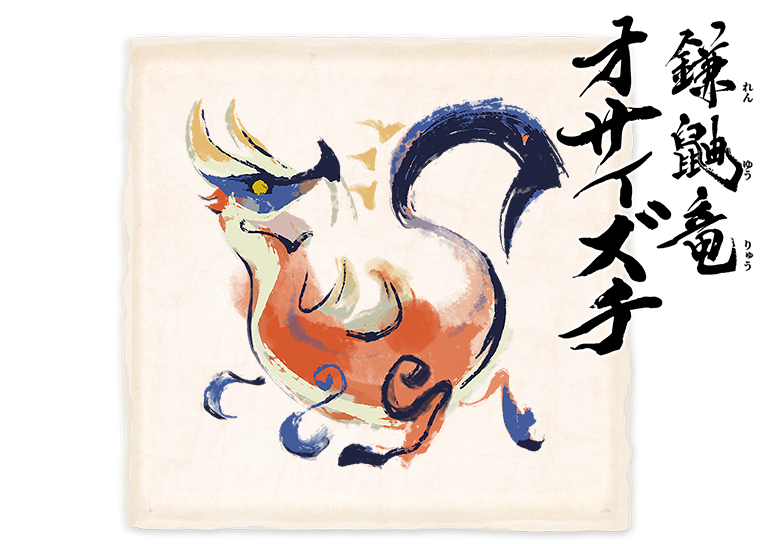 鎌鼬竜
れんゆうりゅう
オサイズチ